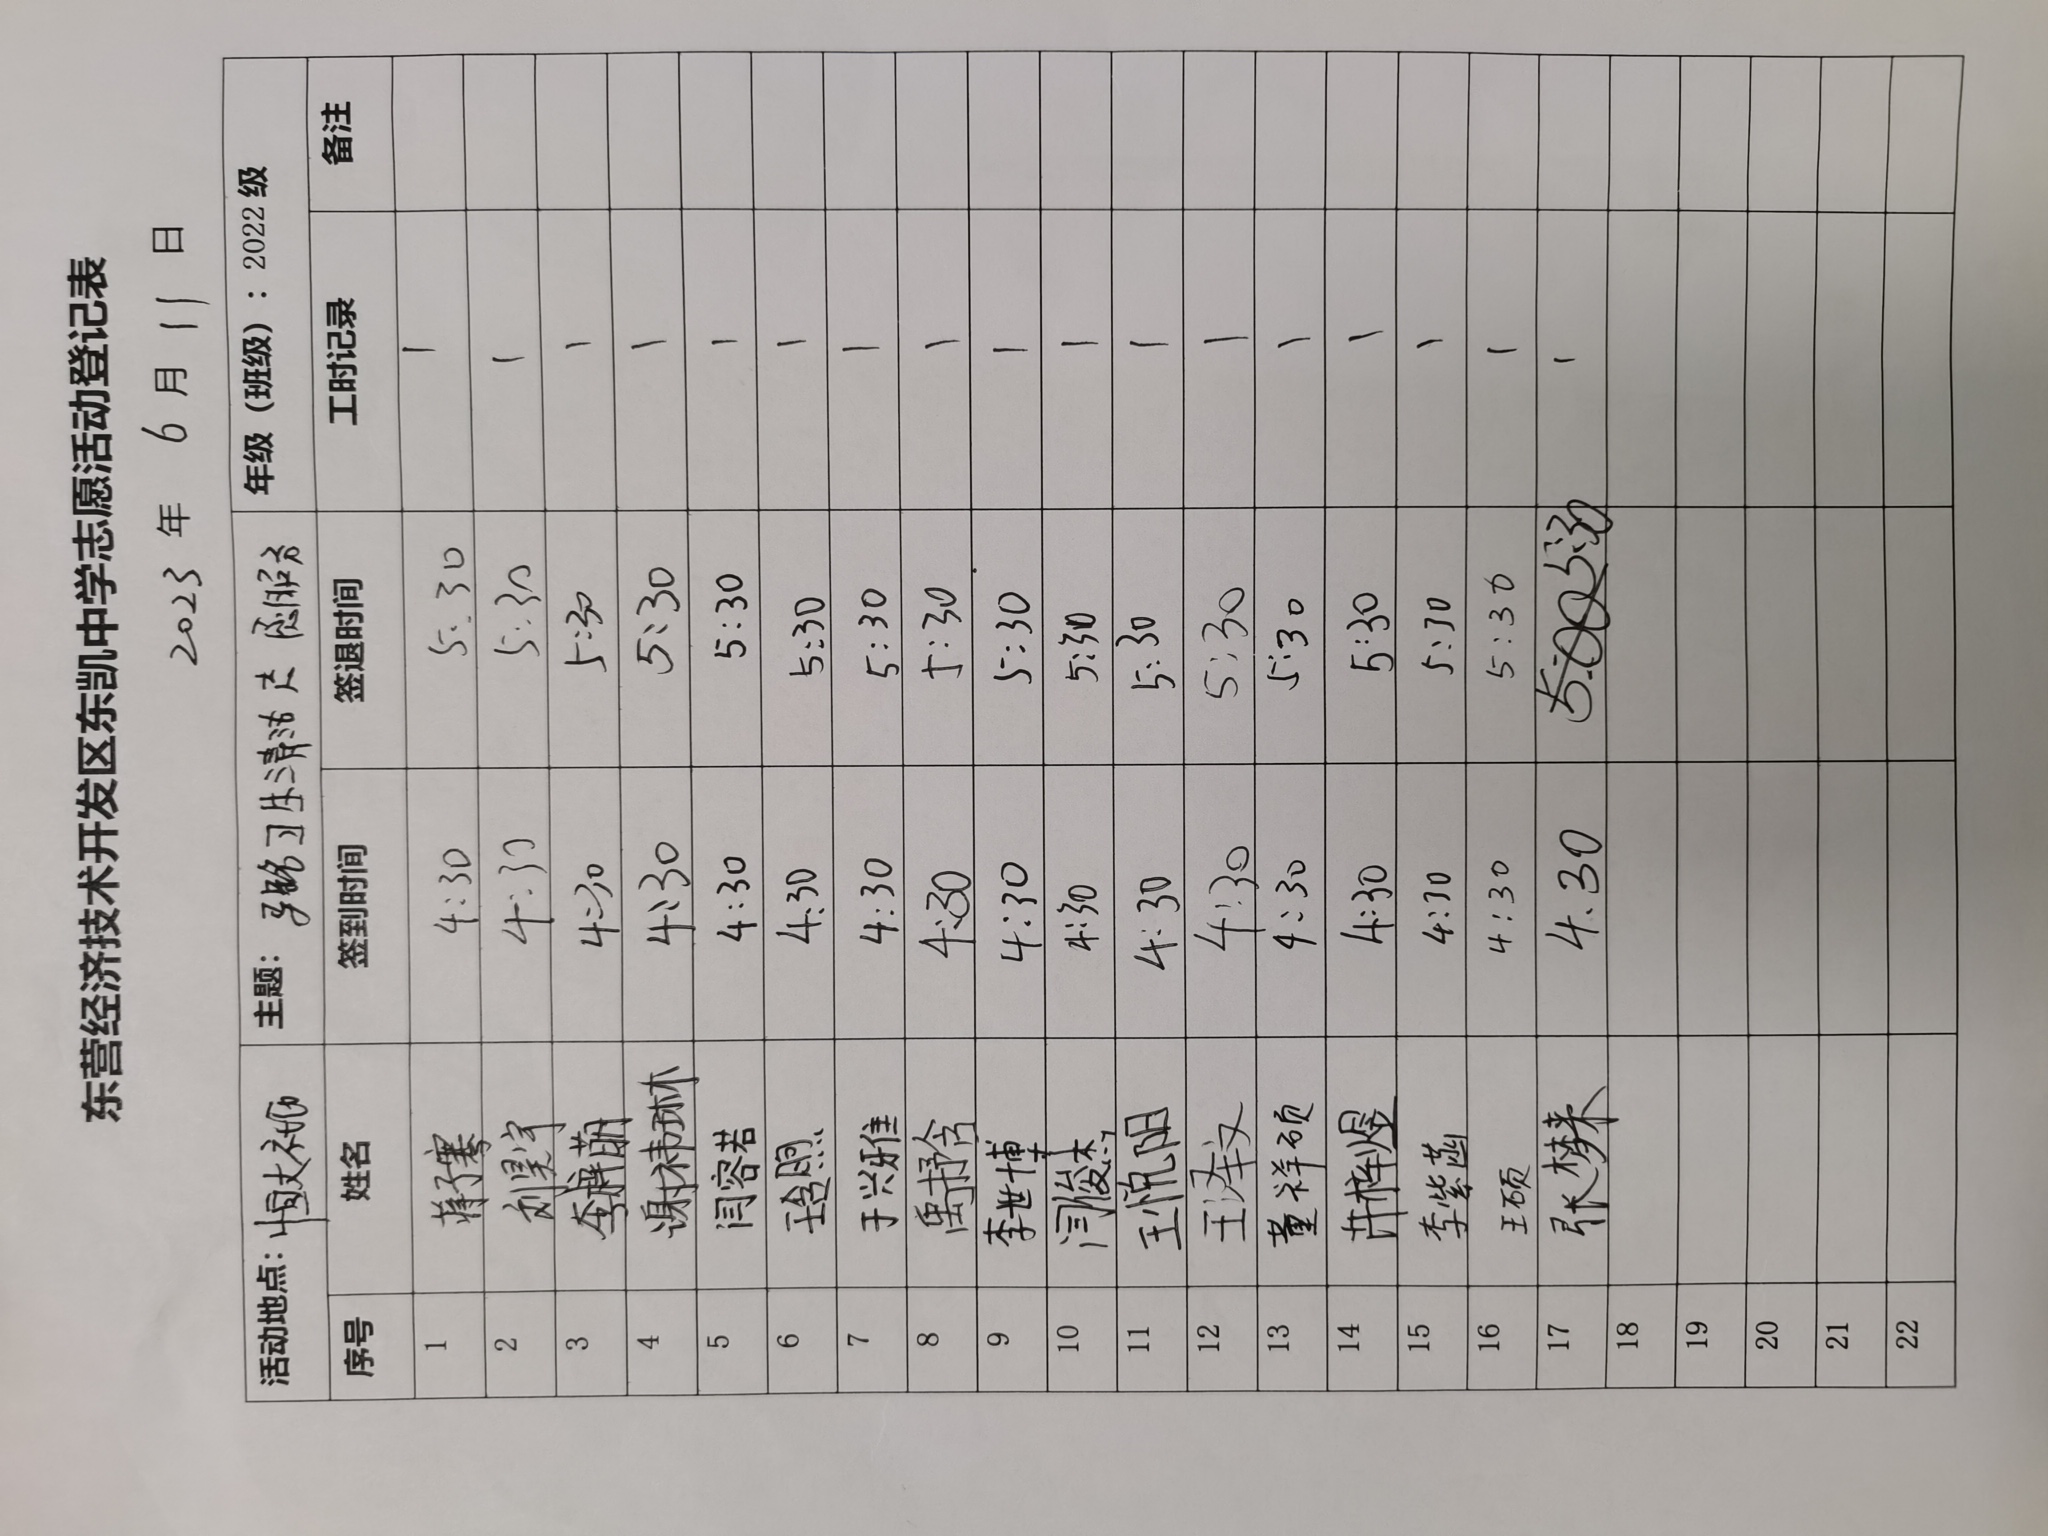 东营经济技术开发区东凯中学志愿活动登记表
2023 年 6 月 11 日
活动地点： 主题： 年级（班级）：2022级
序号 姓名 签到时间 签退时间 工时记录 备注
1 4:30 5:30 1
2 刘昊宇 4:30 5:30 1
3 4:30 5:30 1
4 谢祎琳 4:30 5:30 1
5 闫容若 4:30 5:30 1
6 4:30 5:30 1
7 于兴雅 4:30 5:30 1
8 4:30 5:30 1
9 李世博 4:30 5:30 1
10 闫俊杰 4:30 5:30 1
11 王悦阳 4:30 5:30 1
12 王泽文 4:30 5:30 1
13 董祥硕 4:30 5:30 1
14 许梓煜 4:30 5:30 1
15 李紫菡 4:30 5:30 1
16 王硕 4:30 5:30 1
17 张楚 4:30 5:30 1
18
19
20
21
22